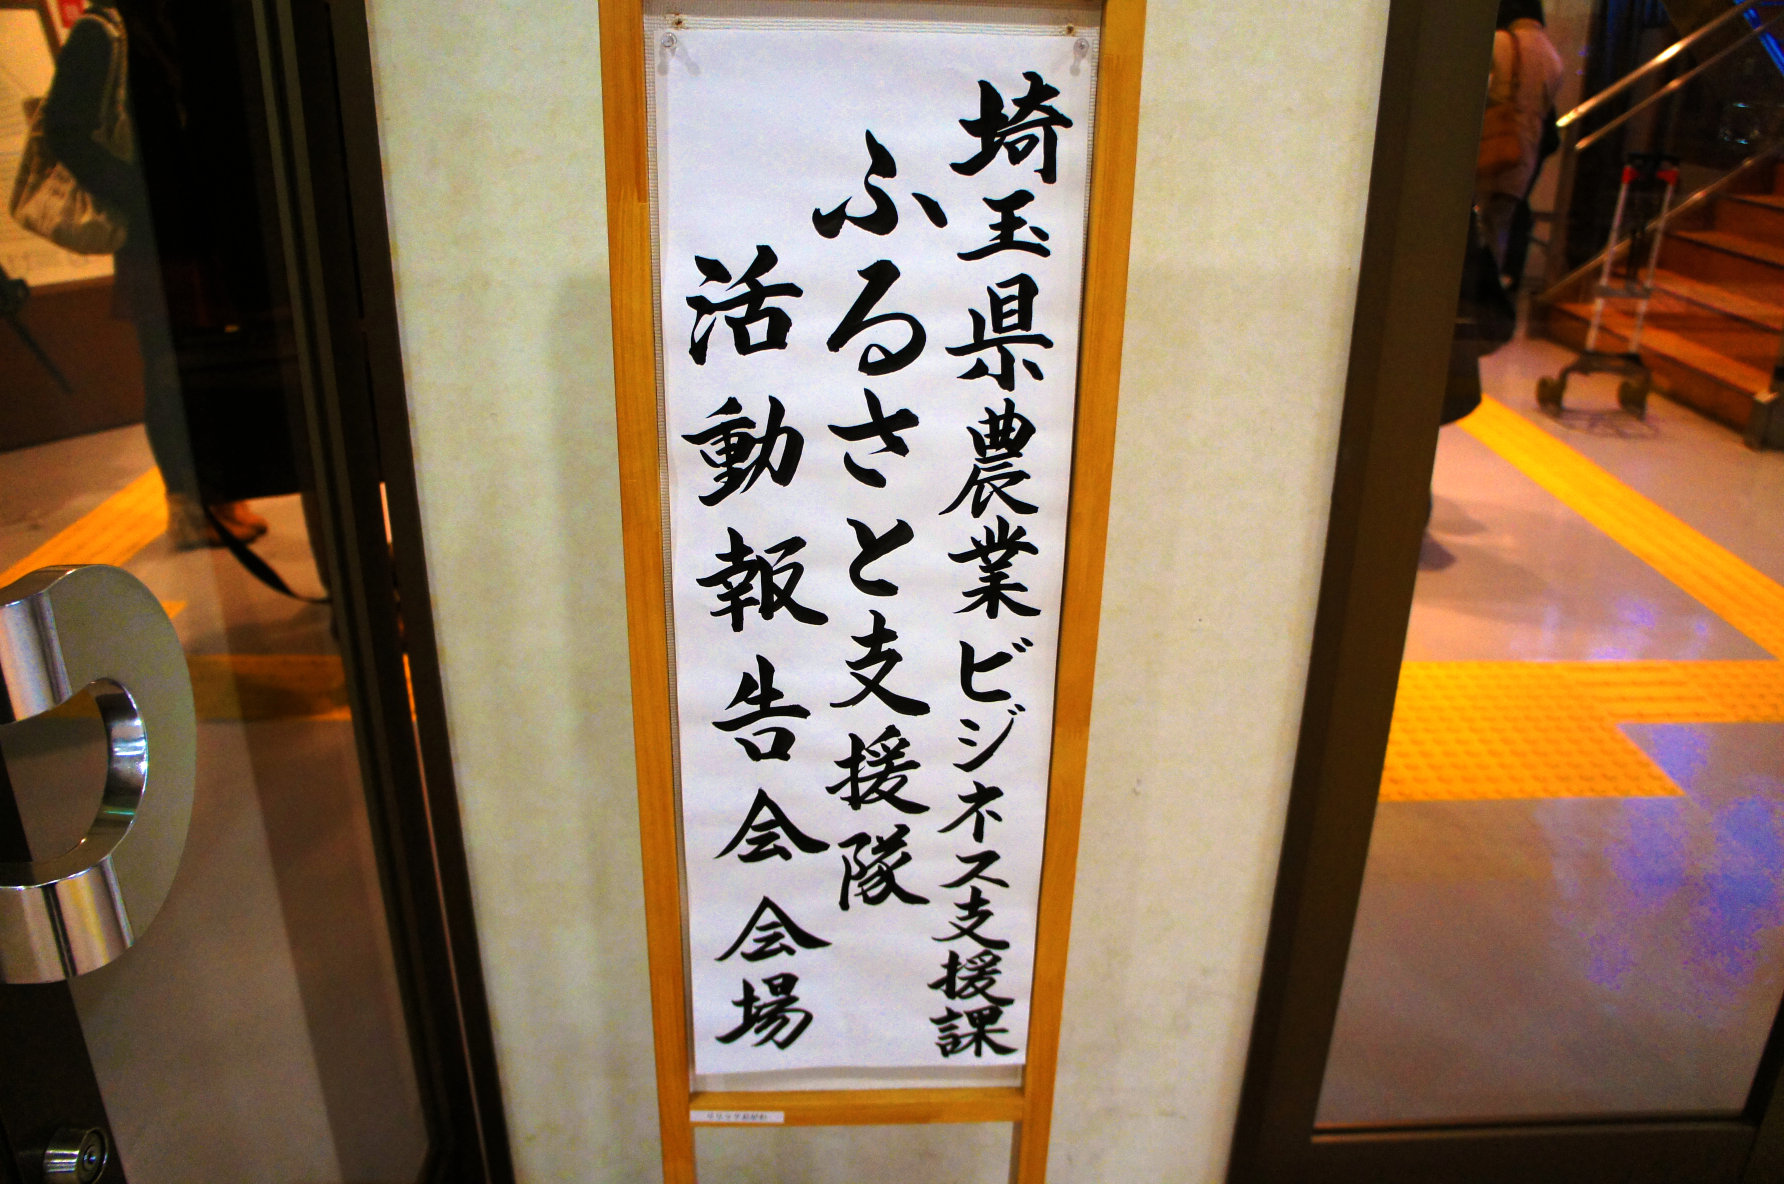 埼玉県農業ビジネス支援課
ふるさと支援隊
活動報告会会場